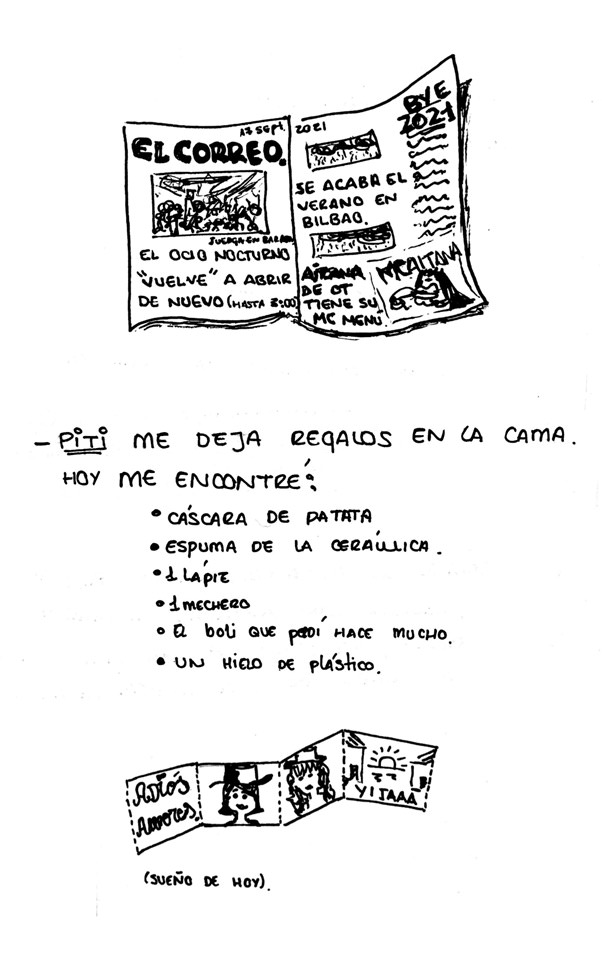 17 SEPT.
EL CORREO.
JUERGA EN
EL OCIO NOCTURNO
"VUELVE" A ABRIR
DE NUEVO (HASTA 3:00)
2021
BYE
2021
SE ACABA EL
VERANO EN
BILBAO.
AITANA
DE OT
TIENE SU
MC MENÚ
MCAITANA
- PiTi ME DEJA REGALOS EN LA CAMA.
HOY ME ENCONTRÉ:
• CÁSCARA DE PATATA
• ESPUMA DE LA
• 1 LÁPIZ
• 1 MECHERO
• El boli QUE HACE MUCHO.
• UN HIELO DE PLÁSTICO.
ADIÓS
AMORES.
YIJAAA
(SUEÑO DE HOY).